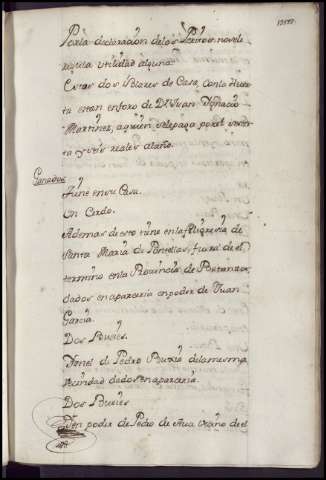 Por la declaracion de los Peritos no se le
regula utilidad alguna.
Estas dos Plazas de Casa, con la Huer
ta estan en foro de Dn. Juan Ignacio
Martinez, a quien se le paga por el
ta y seis reales al año.
Ganados
Tiene en su Casa.
Un Cerdo.
Ademas de esto tiene en la feligresia de
Santa Maria de Portellas, fuera de el
termino en la Provincia de
dados en aparceria en poder de Juan
Garcia.
Dos Bueies.
Ytt en el de Pedro de la misma
vecindad dados en aparceria.
Dos Bueies
Ytt en poder de Pedro de vecino de el